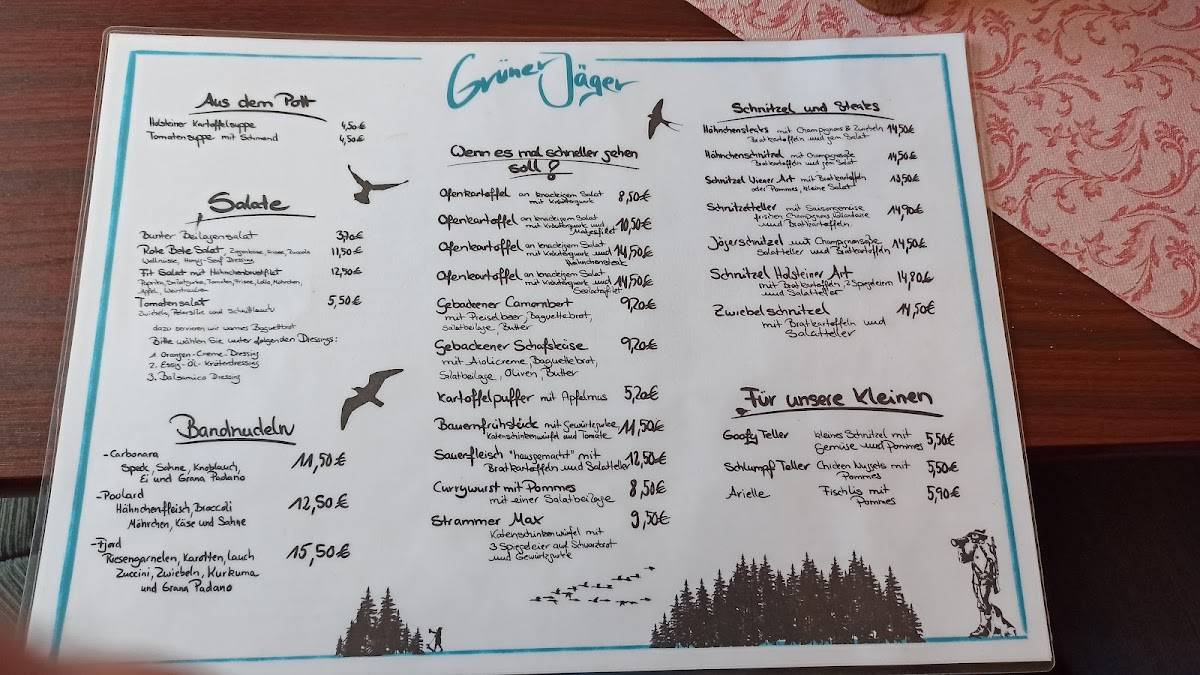 Grüner Jäger
Aus dem Pott
Holsteiner Kartoffelsuppe 4,50€
Tomatensuppe mit Schmand 4,50€
Salate
Bunter Beilagensalat 3,70€
Rote Bete Salat Ziegenkäse, Frisee, Rucola 11,50€
Wallnüsse, Honig-Senf Dressing
Fit Salat mit Hähnchenbrustfilet 12,50€
Paprika, Salatgurke, Tomaten, Frisee, Lollo, Möhrchen,
Apfel, Weintrauben
Tomatensalat 5,50€
Zwiebeln, Petersilie und Schnittlauch
dazu servieren wir warmes Baguettbrot
Bitte wählen Sie unter folgenden Dressings:
1. Orangen-Creme-Dressing
2. Essig-Öl-Kräuterdressing
3. Balsamico Dressing
Bandnudeln
-Carbonara 11,50€
Speck, Sahne, Knoblauch,
Ei und Grana Padano
-Poolard 12,50€
Hähnchenfleisch, Broccoli
Möhrchen, Käse und Sahne
-Fjord 15,50€
Riesengarnelen, Karotten, Lauch
Zuccini, Zwiebeln, Kurkuma
und Grana Padano
Wenn es mal schneller gehen
soll?
Ofenkartoffel an knackigem Salat 8,50€
mit Kräuterquark
Ofenkartoffel an knackigem Salat 10,50€
mit Kräuterquark und
Matjesfilet
Ofenkartoffel an knackigem Salat 14,50€
mit Kräuterquark und
Hähnchensteak
Ofenkartoffel an knackigem Salat 14,50€
mit Kräuterquark und
Gebackener Camonbert 9,20€
mit Preiselbeer, Baguettebrot,
Salatbeilage, Butter
Gebackener Schafskäse 9,20€
mit Aiolicreme, Baguettebrot,
Salatbeilage, Oliven, Butter
Kartoffelpuffer mit Apfelmus 5,20€
Bauernfrühstück mit Gewürzgurke 11,50€
Katenschinkenwürfel und Tomate
Sauerfleisch "hausgemacht" mit 12,50€
Bratkartoffeln und Salatteller
Currywurst mit Pommes 8,50€
mit einer Salatbeilage
Strammer Max 9,50€
Katenschinkenwürfel mit
3 Spiegeleier auf Schwarzbrot
und Gewürzgurke
Schnitzel und Steaks
Hähnchensteaks mit Champignons & Zwiebeln 14,50€
Bratkartoffeln und gem Salat
Hähnchenschnitzel mit Champignonsoße 14,50€
Bratkartoffeln und gem Salat
Schnitzel Wiener Art mit Bratkartoffeln 13,50€
oder Pommes, kleine Salat
Schnitzelteller mit Saisongemüse 14,90€
frischen Champignons Hollandaise
und Bratkartoffeln
Jägerschnitzel mit Champignonsoße 14,50€
Salatteller und Bratkartoffeln
Schnitzel Holsteiner Art 14,80€
mit Bratkartoffeln, 2 Spiegeleiern
und Salatteller
Zwiebelschnitzel 14,50€
mit Bratkartoffeln und
Salatteller
Für unsere Kleinen
Goofy Teller kleines Schnitzel mit 5,50€
Gemüse und Pommes
Schlumpf Teller Chicken Nuggets mit 5,50€
Pommes
Arielle Fischlis mit 5,90€
Pommes